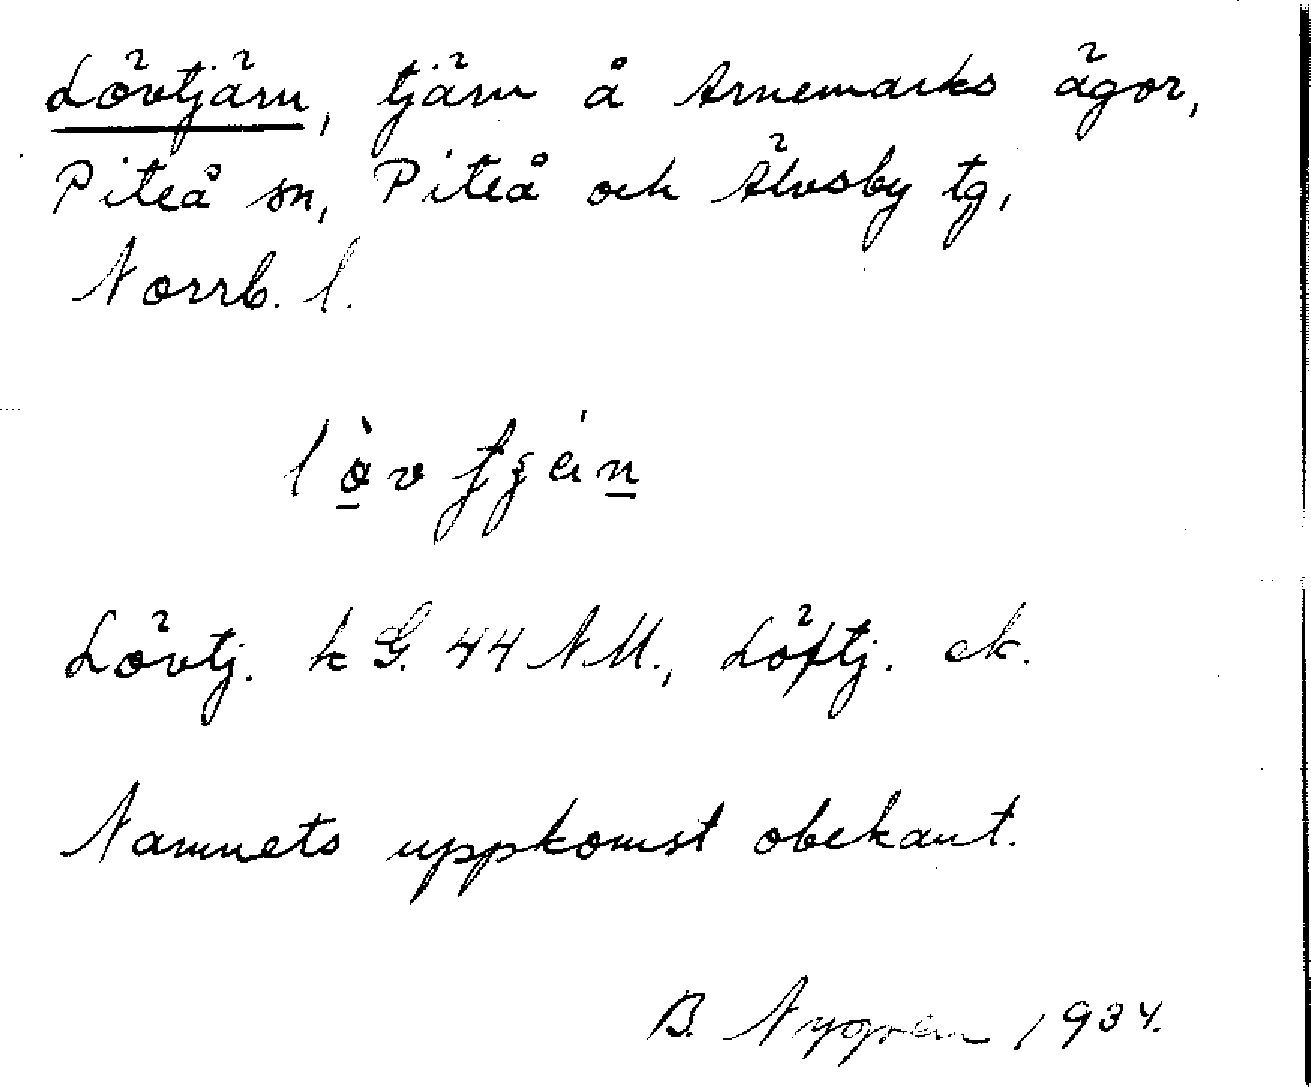 Lövtjärn, tjärn å Arnemarks ägor,
Piteå sn, Piteå och Älvsby tg,
Norrb. l.
Lövtj. k G. 44 NM., Löftj. ek.
Namnets uppkomst obekant.
B. Nygren 1934.